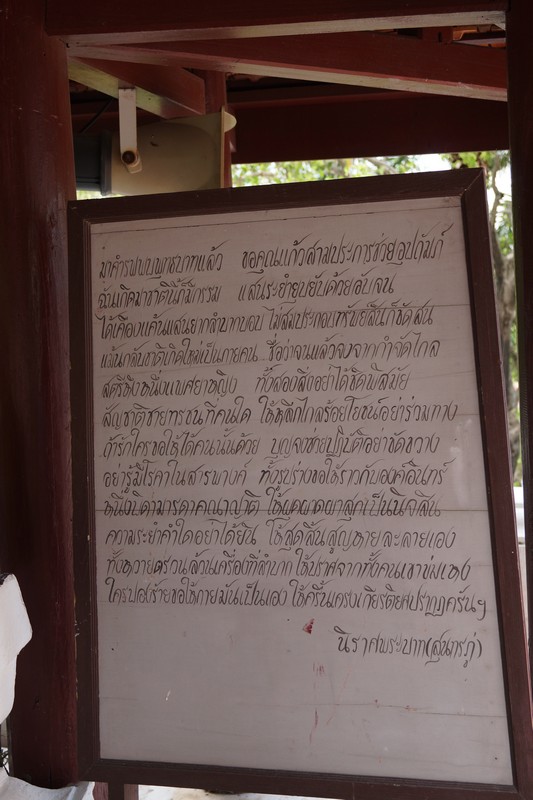 มาคำรพพบพุทธบาทแล้ว ขอคุณแก้วสามประการช่วยอุปถัมภ์
ฉันเกิดมาชาตินี้ก็มีกรรม แสนระยำยุบยับด้วยอับจน
ได้เคืองแค้นแสนยากลำบากบอบ ไม่สมประกอบทรัพย์สินก็ขัดสน
แม้นกลับชาติเกิดใหม่เป็นกายคน ชื่อว่าจนแล้วจงจากกำจัดไกล
สตรีหึงหนึ่งแพศยาหญิง ทั้งสองสิ่งอย่าได้ชิดพิสมัย
สัญชาติชายทรชนที่คนใด ให้หลีกไกลร้อยโยชน์อย่าร่วมทาง
ถ้ารักใครขอให้ได้คนนั้นด้วย บุญจงช่วยปฏิบัติอย่าขัดขวาง
อย่ารู้มีโรคาในสารพางค์ ทั้งรูปร่างขอให้ราวกับองค์อินทร์
หนึ่งบิดามารดาคณาญาติ ให้ผุดผาดผาสุกเป็นนิจสิน
ความระยำคำใดอย่าได้ยิน ให้สุดสิ้นสูญหายละลายเอง
ทั้งหวายตรวนล้วนเครื่องที่ลำบาก ให้ปราศจากทั้งคนเขาข่มเหง
ใครปองร้ายขอให้กายมันเป็นเอง ให้ครื้นเครงเกียรติยศปรากฏครันฯ
นิราศพระบาท(สุนทรภู่)